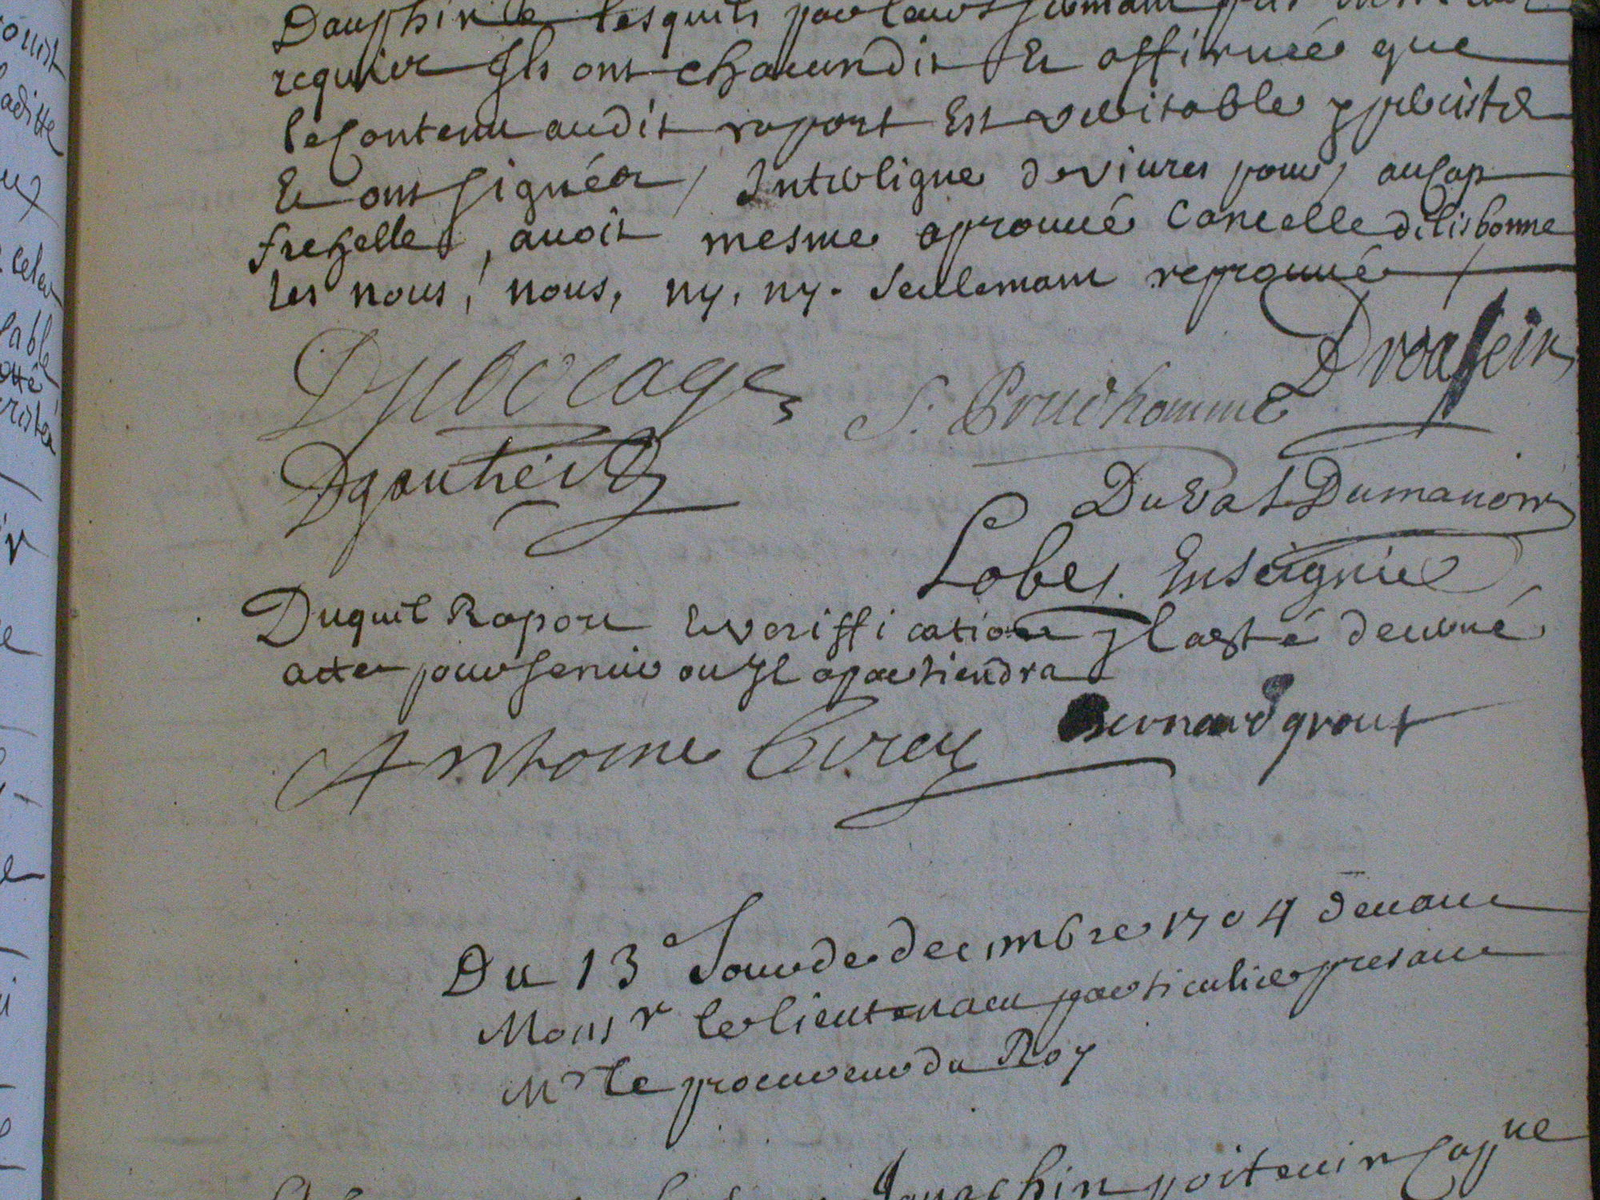 Dauphin & lesquils par leurs sermant pris
requier Ils ont chacun dit Et affirmé que
le Contenu audit raport Est veritable y persiste
Et ont signéer / Intreligne de viures pour, au Cap
frehelle, auoit mesme aprouué Cancelle de lisbonne
les nous, nous, ny, ny. Seullemant reprouué
Dubocage
S. Prudhomme
Dvouselin
Dgautier
Duval Dumanoir
Lobes. Enseignie
Duquel Raport Et veriffication Il a esté décerné
acte pour servir ou Il apartiendra
Anthoine Cirey Bernard grout
Du 13e Jour de decembre 1704 deuant
Monsr le lieutenant particulier presant
Mr le procureur du Roy
Jouachin poitevin Cappne